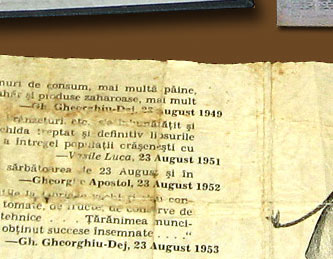 nuri de consum, mai multă pâine,
și produse zaharoase, mai mult
—Gh. Gheorghiu-Dej, 23 august 1949
etc.
treptat și definitiv lipsurile
a întregii populații orășenești cu
—Vasile Luca, 23 August 1951
sărbătoarea de 23 August și în
—Gheorghe Apostol, 23 August 1952
tomate, de fructe, de conserve de
tehnice . . . Țărănimea munci-
obținut succese însemnate . . . ."
—Gh. Gheorghiu-Dej, 23 August 1953